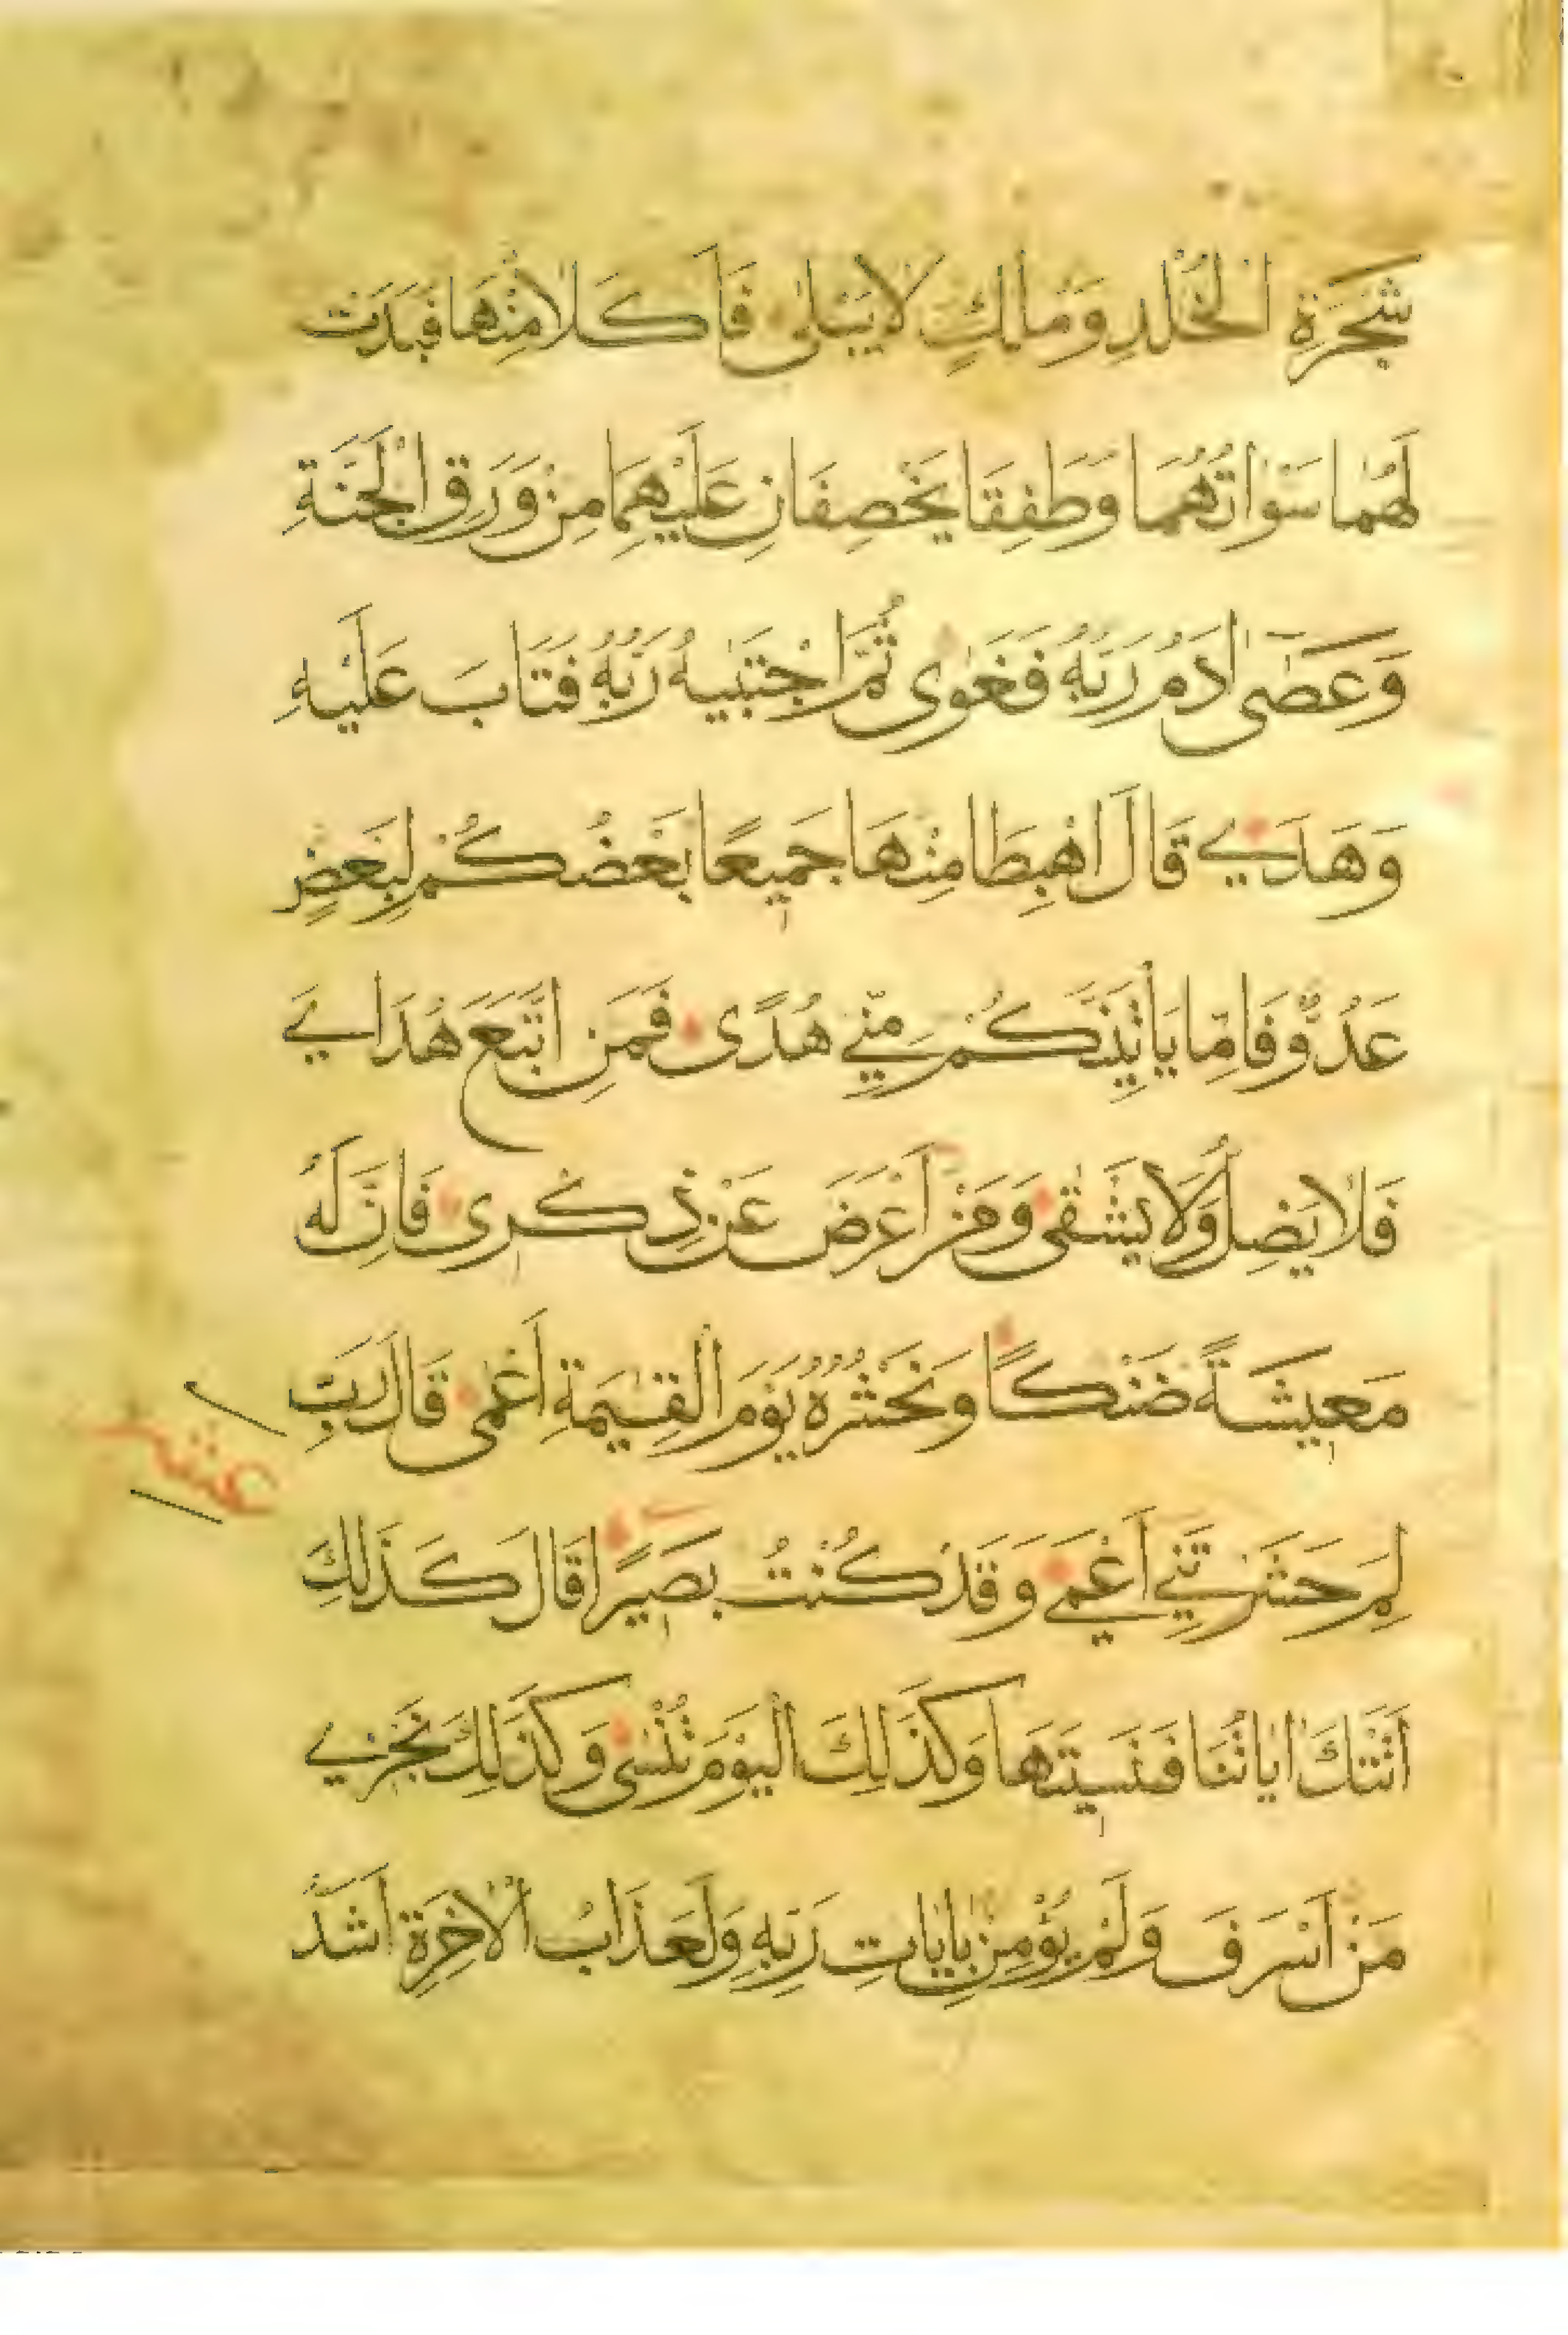 شَجَرَةِ الْخُلْدِ وَمُلْكٍ لَا يَبْلٰى فَاَكَلَا مِنْهَا فَبَدَتْ
لَهُمَا سَوْاٰتُهُمَا وَطَفِقَا يَخْصِفَانِ عَلَيْهِمَا مِنْ وَرَقِ الْجَنَّةِ
وَعَصٰى اٰدَمُ رَبَّهُ فَغَوٰى ثُمَّ اجْتَبٰيهُ رَبُّهُ فَتَابَ عَلَيْهِ
وَهَدٰي قَالَ اهْبِطَا مِنْهَا جَمِيعًا بَعْضُكُمْ لِبَعْضٍ
عَدُوٌّ فَاِمَّا يَأْتِيَنَّكُمْ مِنِّي هُدًى فَمَنِ اتَّبَعَ هُدَايَ
فَلَا يَضِلُّ وَلَا يَشْقٰى وَمَنْ اَعْرَضَ عَنْ ذِكْرِى فَاِنَّ لَهُ
مَعِيشَةً ضَنْكًا وَنَحْشُرُهُ يَوْمَ الْقِيٰمَةِ اَعْمٰى قَالَ رَبِّ
لِمَ حَشَرْتَنِي اَعْمٰي وَقَدْ كُنْتُ بَصِيرًا قَالَ كَذَلِكَ
اَتَتْكَ اٰيَاتُنَا فَنَسِيتَهَا وَكَذَلِكَ الْيَوْمَ تُنْسٰى وَكَذَلِكَ نَجْزِي
مَنْ اَسْرَفَ وَلَمْ يُؤْمِنْ بِاٰيَاتِ رَبِّهِ وَلَعَذَابُ الْاٰخِرَةِ اَشَدُّ